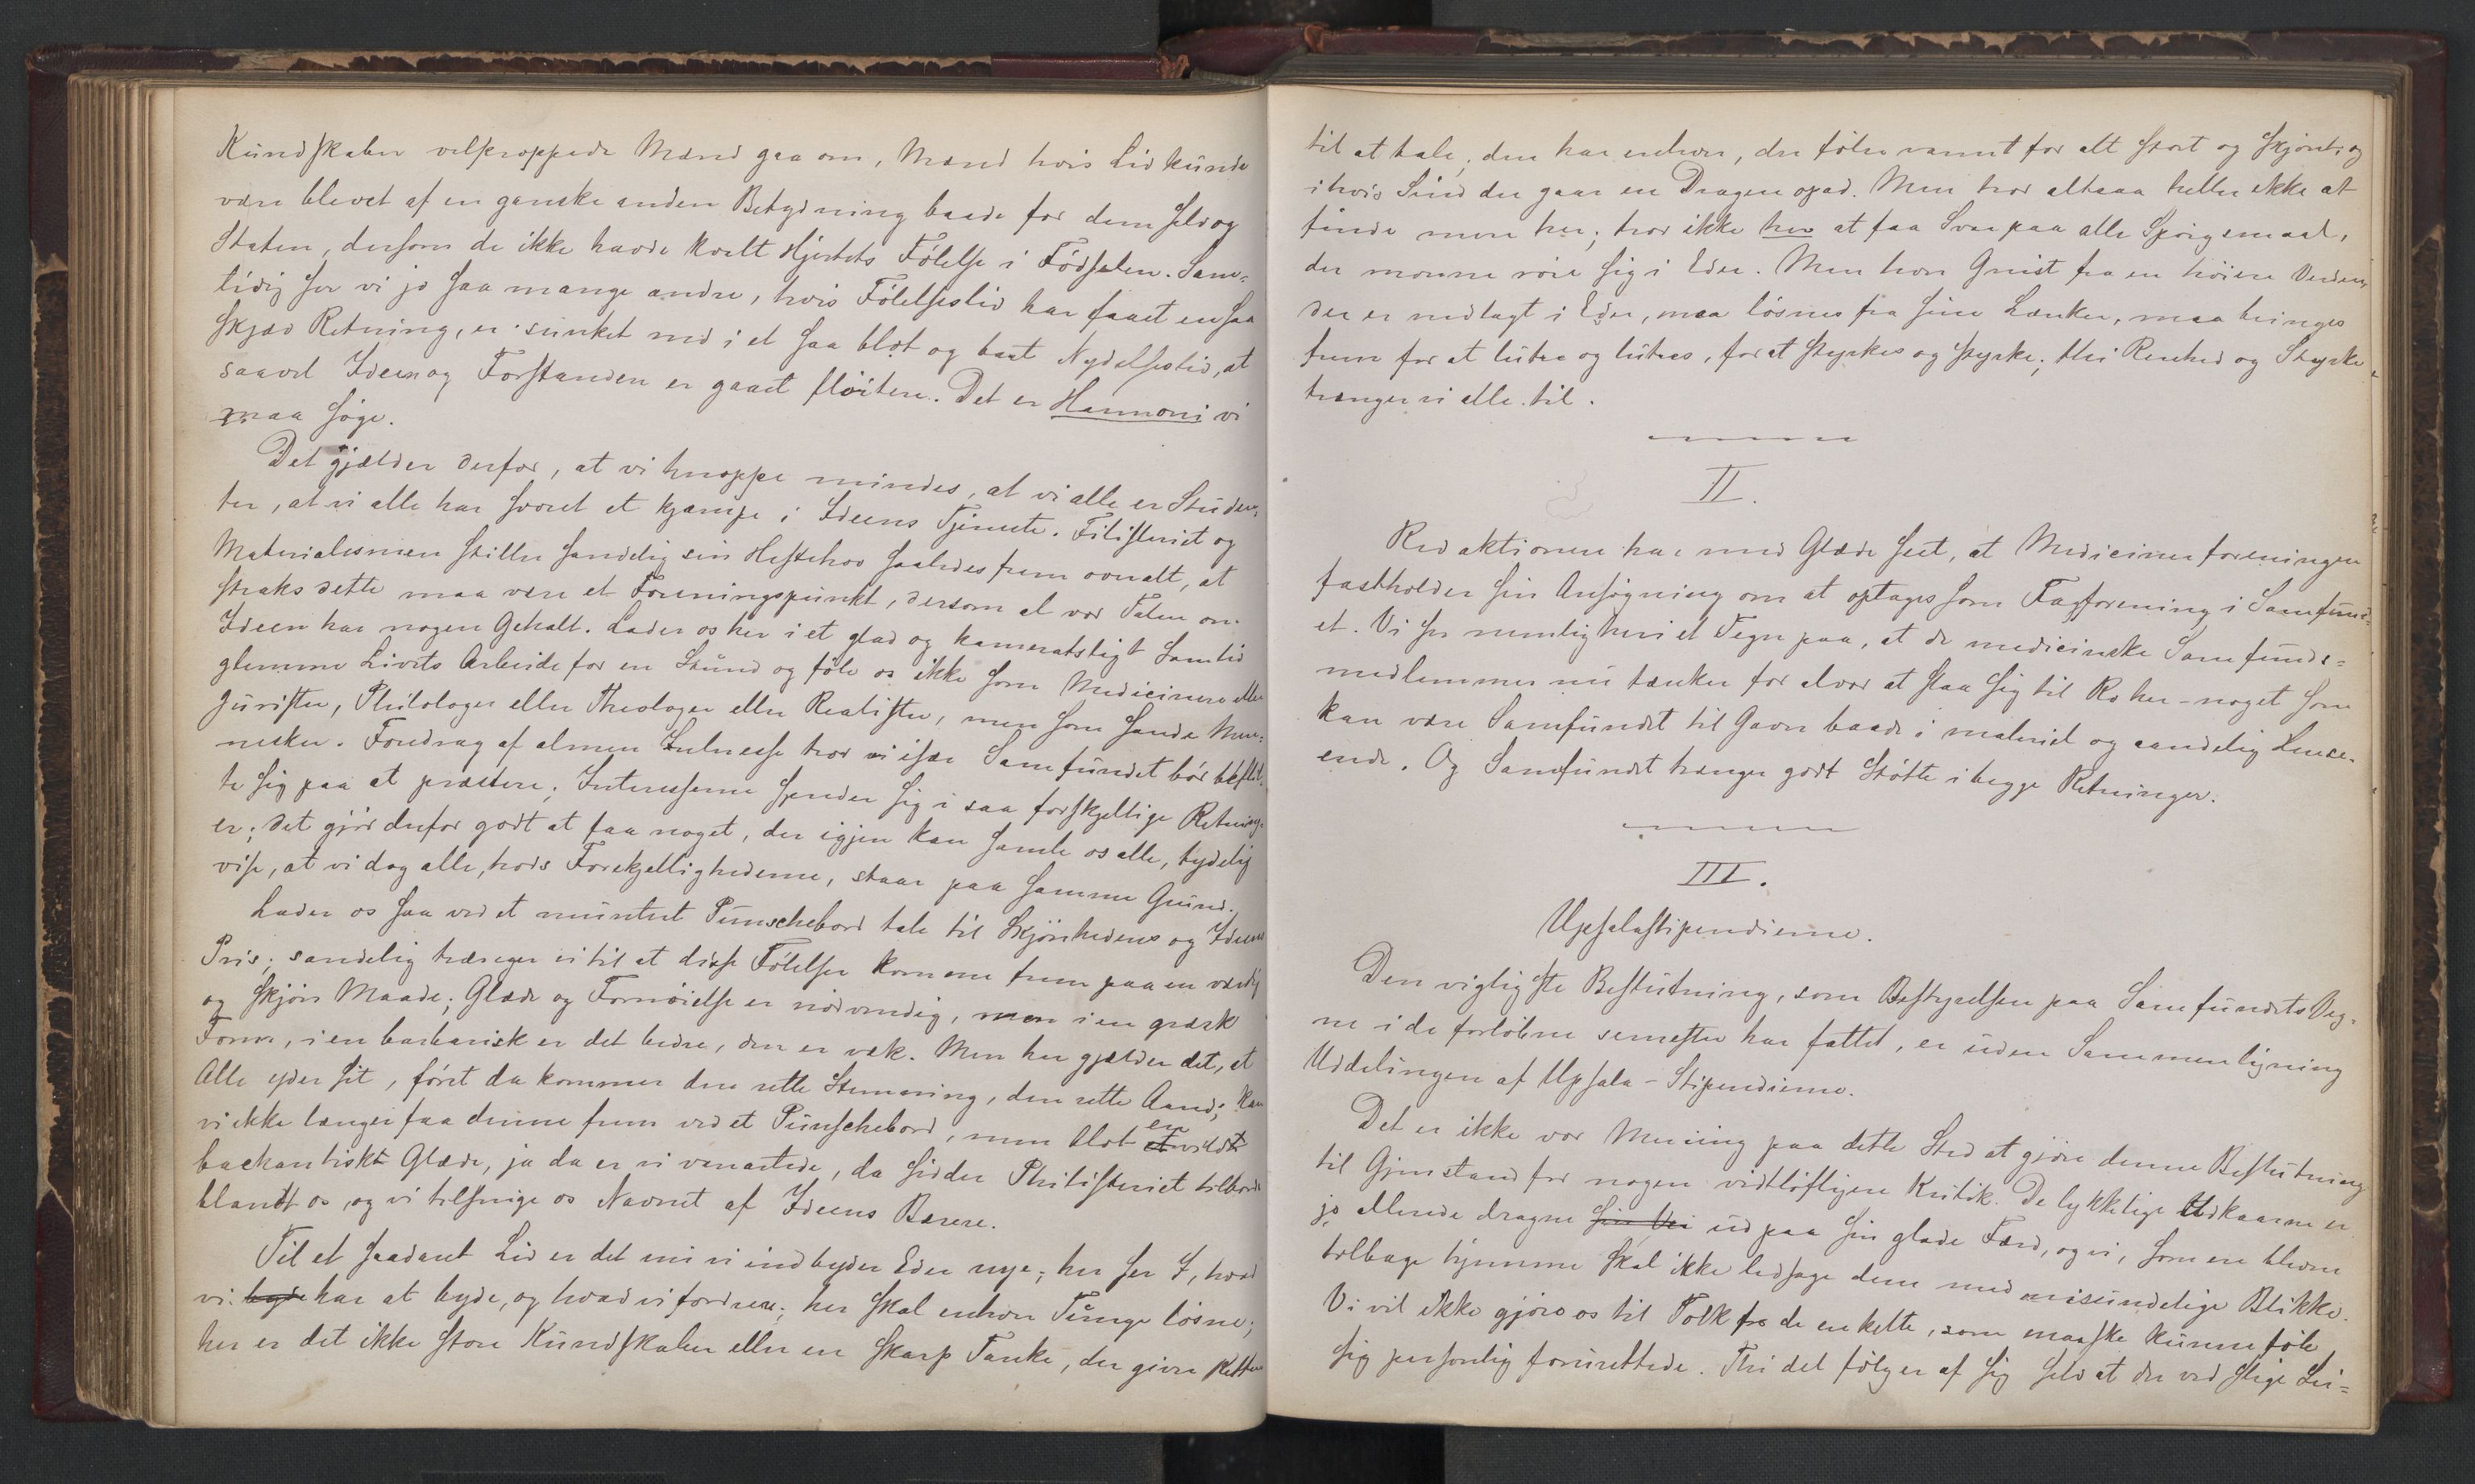 Kundskaber velproppede Mænd gaa om, Mænd hvis Liv kunde
være blevet af en ganske anden Betydning baade for dem selv og
Staten, dersom de ikke havde kvalt Hjertets Følelse i Fødselen. Sam-
tidig ser vi jo saa mange andre, hvis Følelsesliv har faaet en saa
skjæv Retning, er sunket ned i et saa blot og bart Nydelsesliv, at
saavel Ideen og Forstanden er gaaet fløiten. Det er Harmoni vi
maa søge.
Det gjælder derfor, at vi knappe mindes, at vi alle er Studen-
ter, at vi alle har svoret at kjæmpe i Ideens Tjeneste. Filisteriet og
Materialismen stiller sandelig sin Hestehov saaledes frem overalt, at
straks dette maa være et Foreningspunkt, dersom al vor Talen om
Ideen har nogen Gehalt. Lader os her i et glad og kameratsligt Samliv
glemme Livets Arbeide for en Stund og føle os ikke som Medicinere eller
Jurister, Philologer eller Theologer eller Realister, men som sande Men-
nesker. Foredrag af almen Interesse tror vi især Samfundet bør beflit-
te sig paa at præstere; Interesserne spreder sig i saa forskjellige Retning-
er; det gjør derfor godt at faa noget, der igjen kan samle os alle, tydelig
vise, at vi dog alle, trods Forskjellighederne, staar paa samme Grund.
Lader os saa ved et muntert Punschebord tale til Skjønhedens og Ideens
Pris; sandelig trænger vi til at disse Følelser komme frem paa en værdig
og skjøn Maade; Glæde og Fornøielse er nødvendig, men i en græsk
Form, i en barbarisk er det bedre, den er væk. Men her gjælder det, at
Alle yder sit, først da kommer den rette Stemning, den rette Aand; kan
vi ikke længer faa denne frem ved et Punschebord, men blot et en vildt
backantiskt Glæde, ja da er vi vanartede, da sidder Philisteriet tilbords
blandt os og vi tilsnige os Navnet af Ideens Bærere.
Til et saadant Liv er det nu vi indbyder Eder nye; her ser I, hvad
vi byde har at byde, og hvad vi fordrer; her skal enhver Tunge løsne;
her er det ikke store Kundskaber eller en skarp Tanke, der giver Retten
til at tale, den har enhver, der føler varmt for alt stort og skjønt, og
i hvis Sind der gaar en Dragen opad. Men tror altsaa heller ikke at
finde mere her; tror ikke her at faa Svar paa alle Spørgsmaal,
der monne røre sig i Eder. Men hver Gnist fra en høiere Verden,
der er nedlagt i Eder, maa løsnes fra sine Lænker, maa bringes
frem for at lutre og lutres, for at styrkes og styrke; thi Renhed og Styrke
trænger vi alle til.
II.
Redaktionen har med Glæde seet, at Medicinerforeningen
fastholder sin Ansøgning om at optages som Fagforening i Samfund-
et. Vi ser nemlig heri et Tegn paa, at de medicinske Samfunds-
medlemmer nu tænker for alvor at slaa sig til Ro her – noget som
kan være Samfundet til Gavn baade i materiel og aandelig Hense-
ende. Og Samfundet trænger godt Støtte i begge Retninger.
III.
Upsalastipendierne.
Den vigtigste Beslutning, som Bestyrelsen paa Samfundets Veg-
ne i de forløbne semester har fattet, er uden Sammenligning
Uddelingen af Upsala-Stipendierne.
Det er ikke vor Mening paa dette Sted at gjøre denne Beslutning
til Gjenstand for nogen vidtløftigere Kritik. De lykkelige Udkaarne er
jo allerede dragne sin Vei ud paa sin glade Færd, og vi, som er blevne
tilbage hjemme skal ikke ledsage dem med misundelige Blikke.
Vi vil ikke gjøre os til Tolk for de enkelte, som maaske kunne føle
sig personlig forurettede. Thi det følger af sig selv at der ved slige Lei-